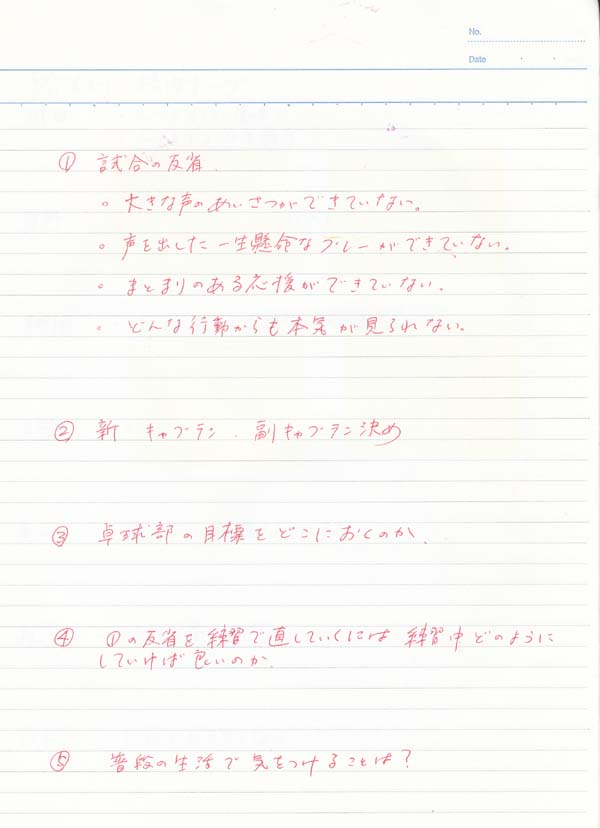 No.
Date
① 試合の反省.
○ 大きな声のあいさつができていない。
○ 声を出した一生懸命なプレーができていない。
○ まとまりのある応援ができていない.
○ どんな行動からも本気が見られない。
② 新 キャプテン . 副キャプテン決め
③ 卓球部の目標をどこにおくのか.
④ ①の反省を練習で直していくには 練習中どのように
していけば良いのか.
⑤ 普段の生活で気をつけることは?